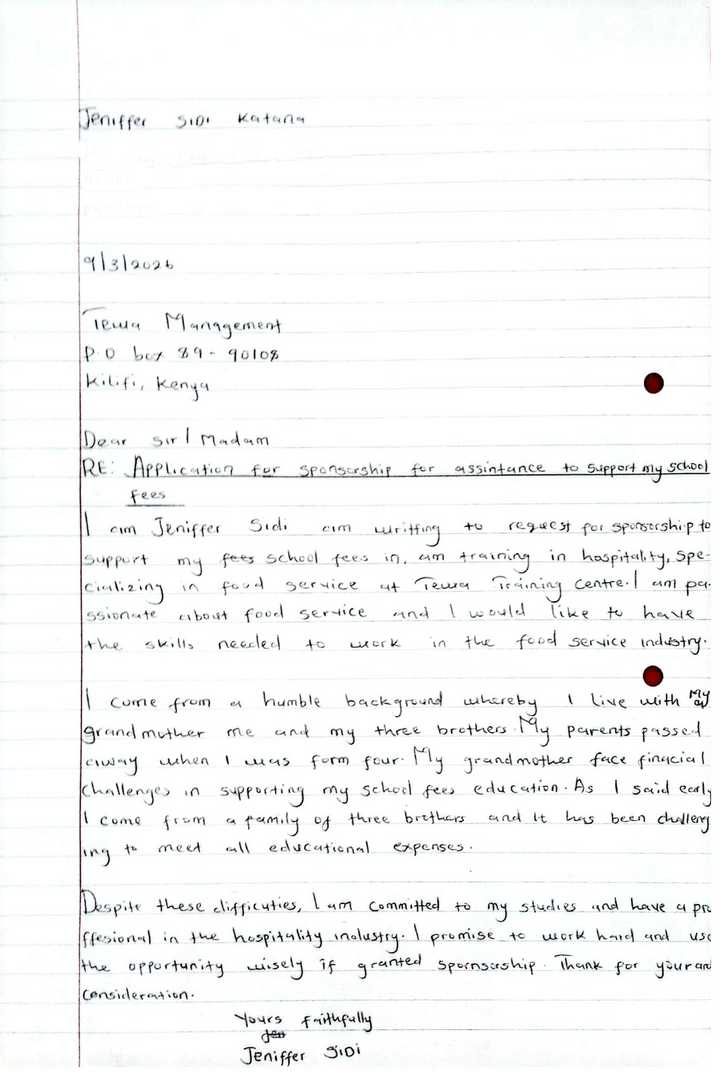 Jeniffer SIDI Katana
9/3/2026
Tewa Management
P.O box 89 - 90108
Kilifi, Kenya
Dear Sir / Madam
RE: Application for sponsorship for assintance to support my school
fees
I am Jeniffer Sidi am writting to request for sponsorship to
support my fees school fees in. am training in hospitality, spe-
cializing in food service at Tewa Training centre. I am pa-
ssionate about food service and I would like to have
the skills needed to work in the food service industry.
I come from a humble background whereby I live with My
grandmother me and my three brothers. My parents passed
away when I was form four. My grandmother face finacial
challenges in supporting my school fees education. As I said early
I come from a family of three brothers and it has been challeng
ing to meet all educational expenses.
Despite these difficuties, I am committed to my studies and have a pro
ffesional in the hospitality industry. I promise to work hard and use
the opportunity wisely if granted spornsorship. Thank for your
consideration.
Yours faithfully
Jen
Jeniffer SIDI